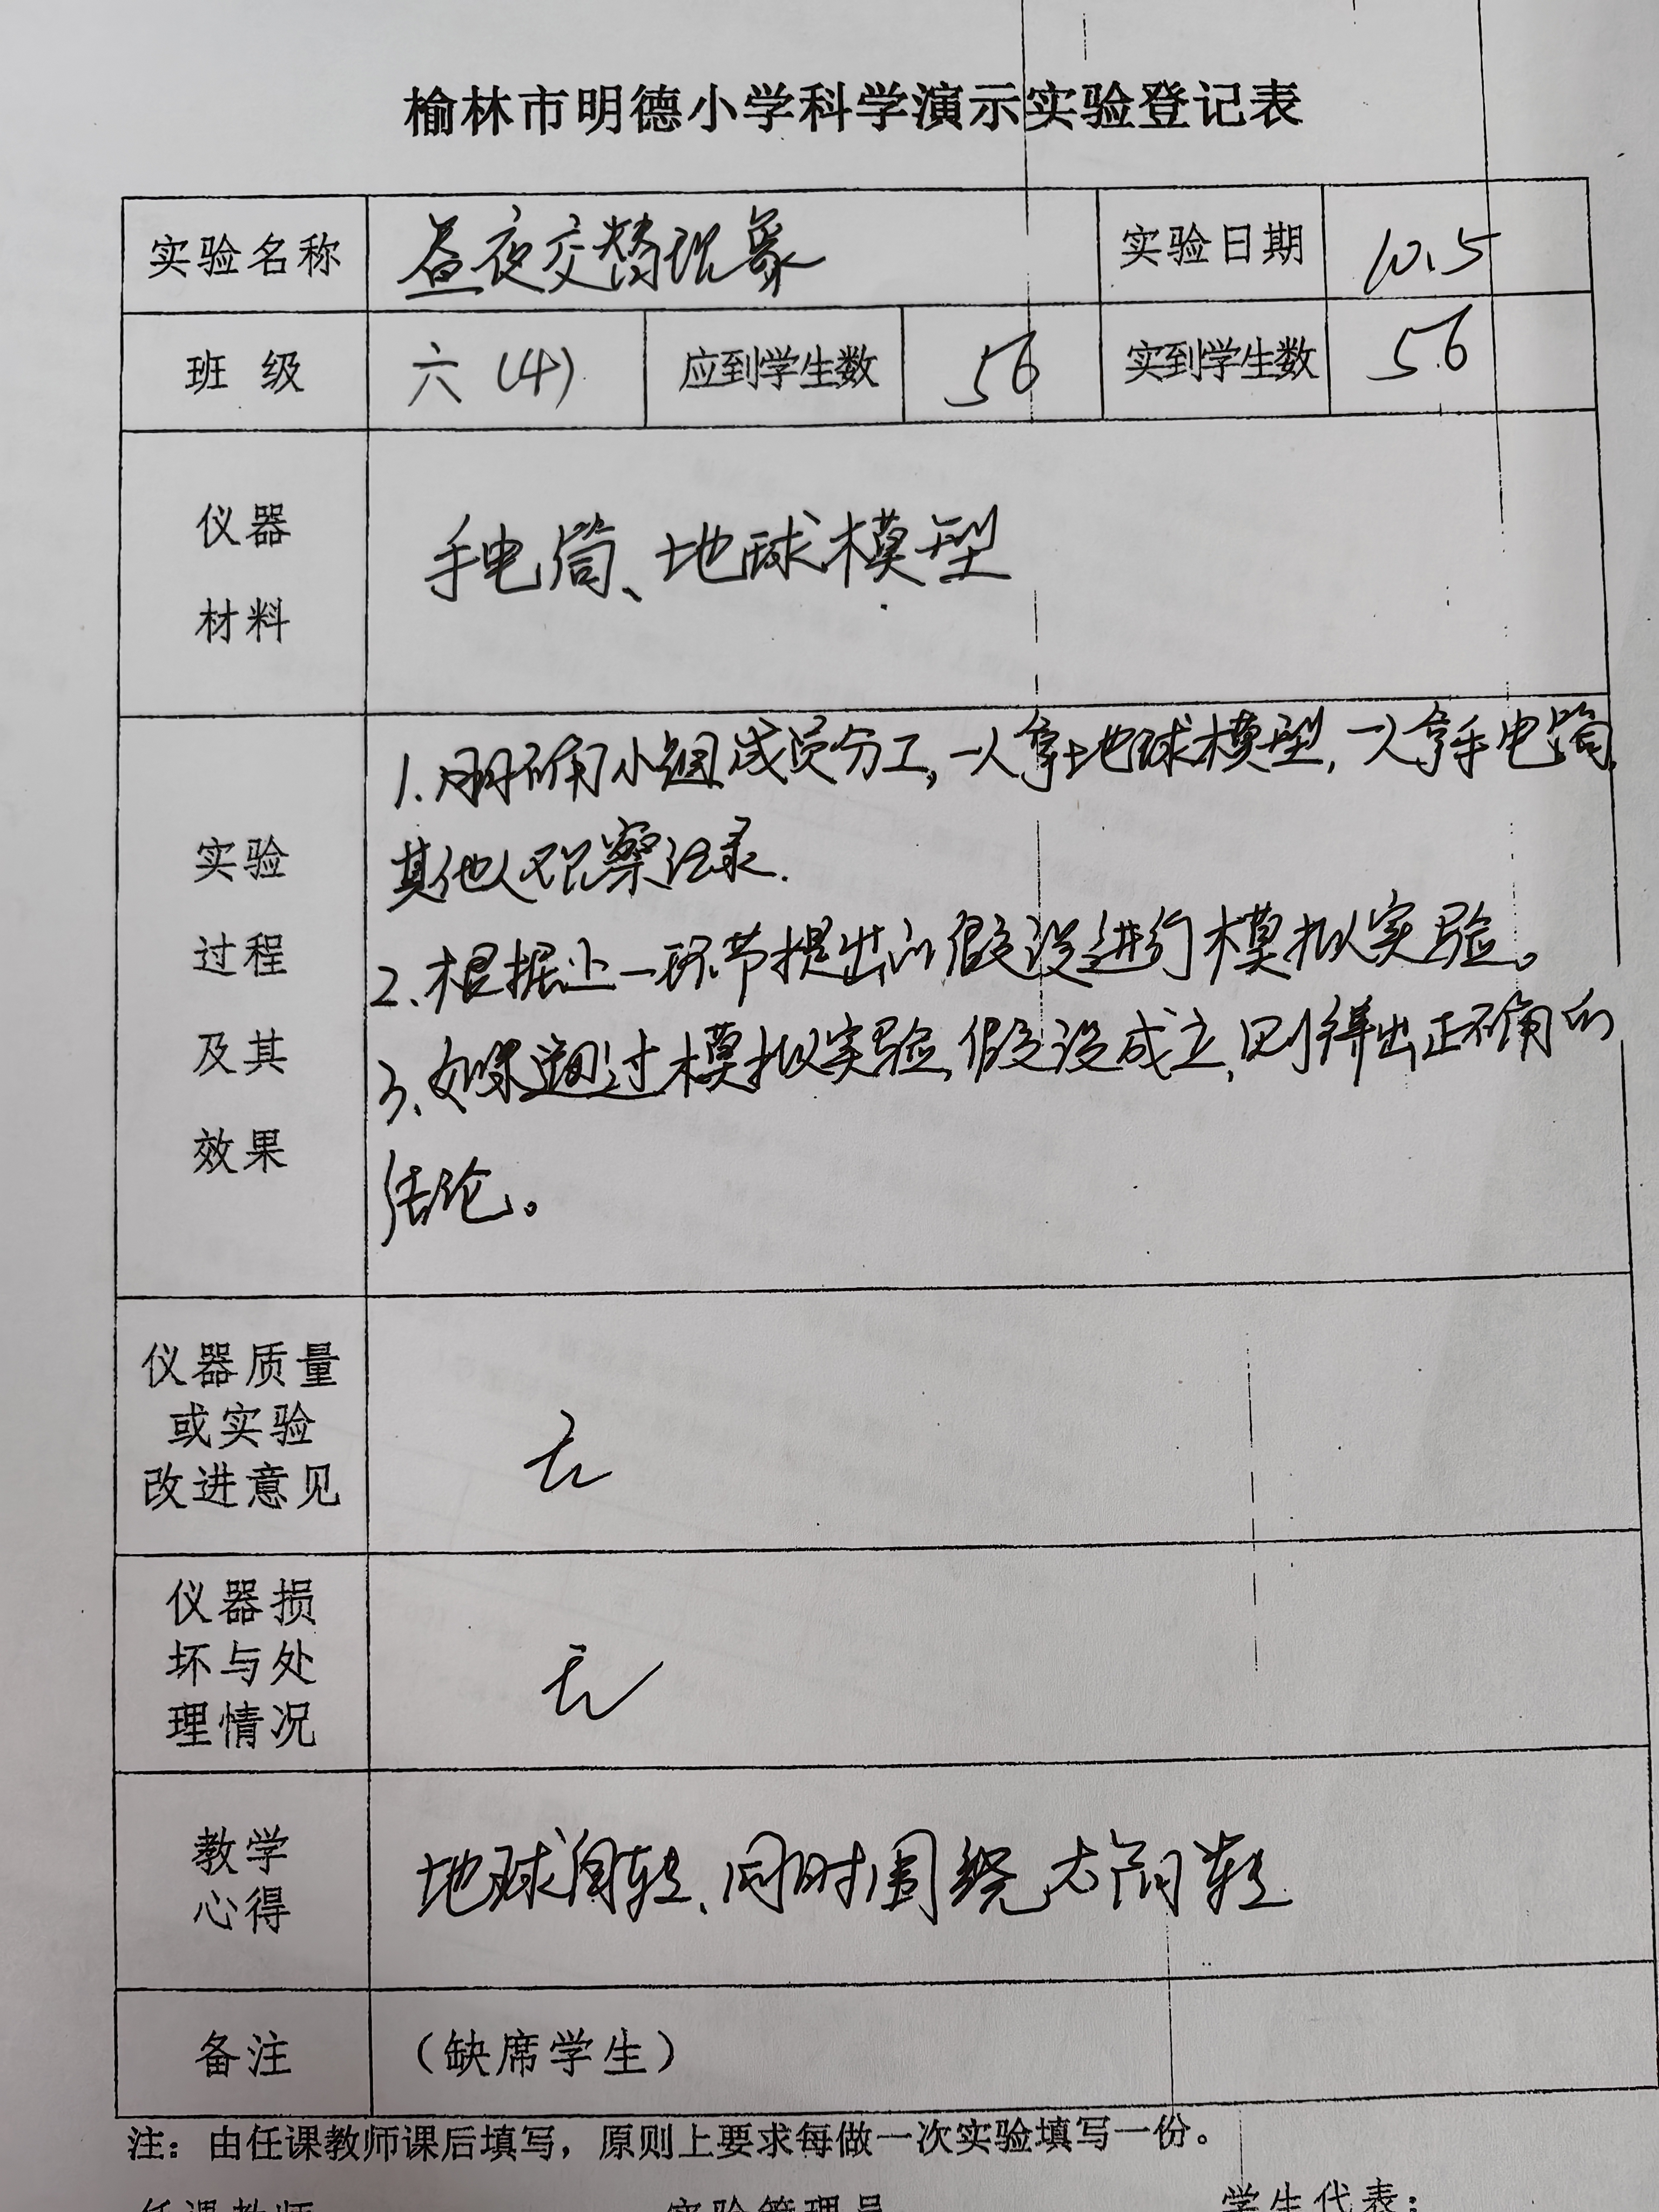 榆林市明德小学科学演示实验登记表
实验名称 昼夜交替现象 实验日期 10.5
班 级 六(4) 应到学生数 56 实到学生数 56
仪器
材料
手电筒、地球模型
实验
过程
及其
效果
1.明确小组成员分工,一人拿地球模型,一人拿手电筒,
其他人观察记录.
2.根据上一环节提出的假设进行模拟实验。
3.如果通过模拟实验,假设成立,则得出正确的
结论。
仪器质量
或实验
改进意见
无
仪器损
坏与处
理情况
无
教学
心得
地球自转、同时围绕太阳转
备注 （缺席学生）
注：由任课教师课后填写，原则上要求每做一次实验填写一份。
任课教师 实验管理员 学生代表：